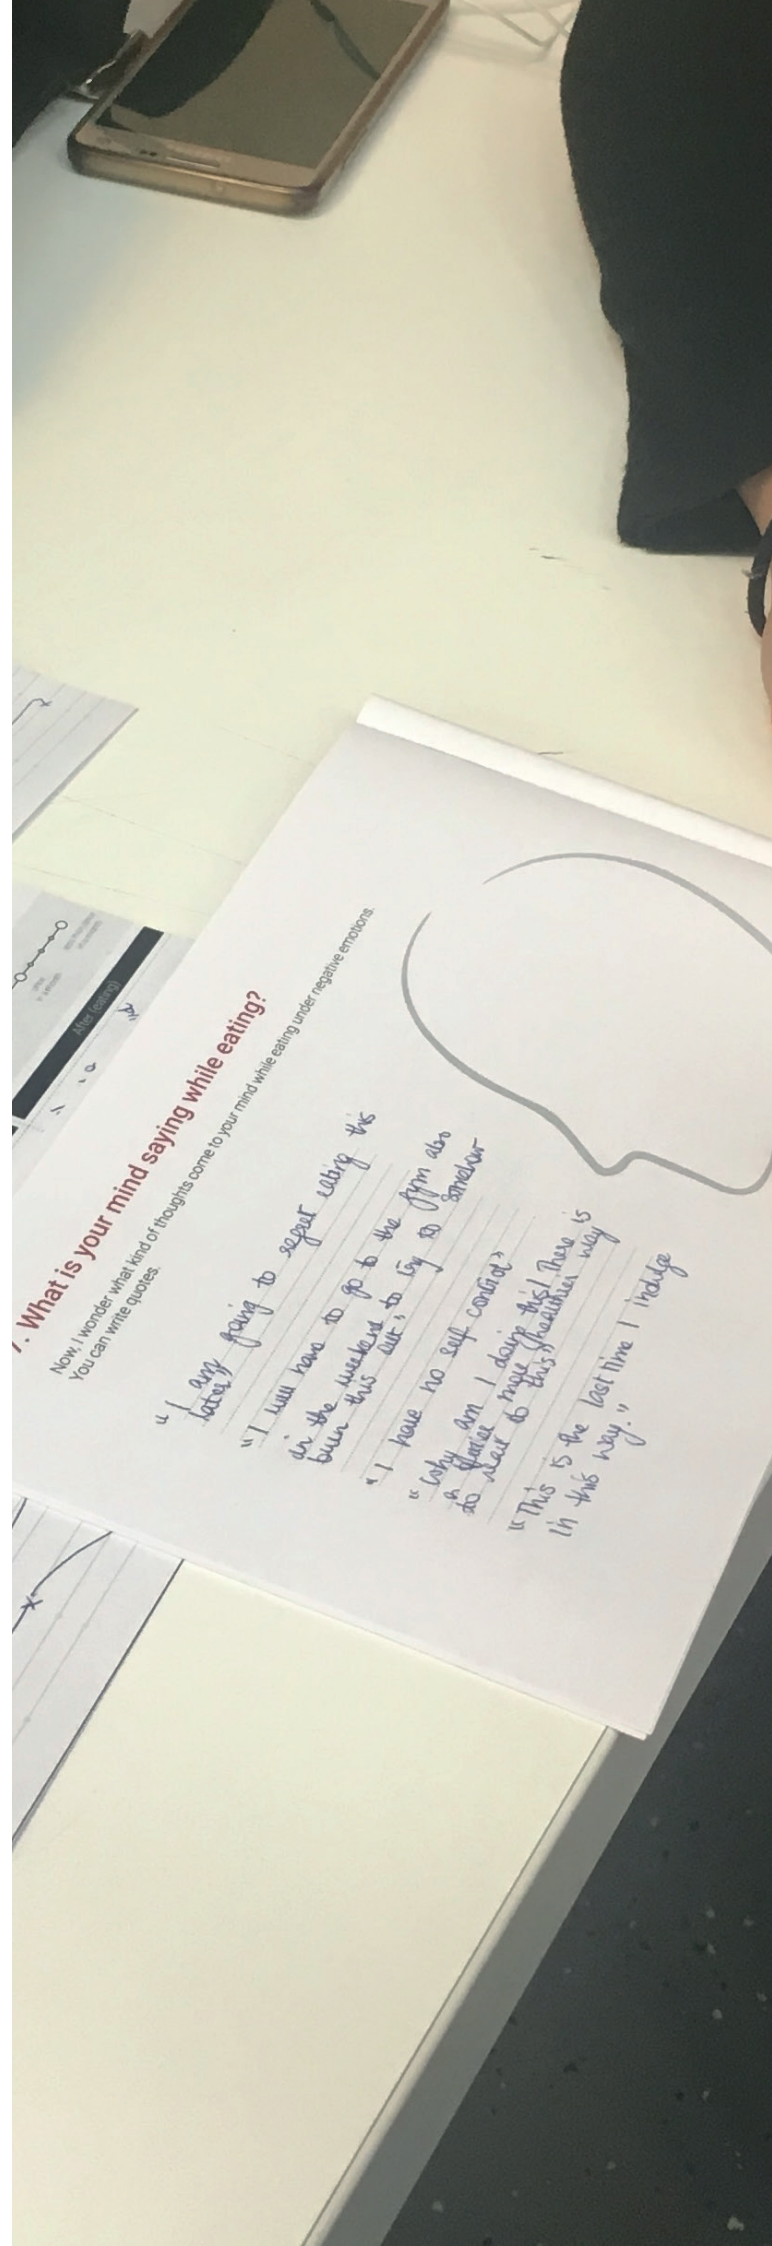 7. What is your mind saying while eating?
Now, I wonder what kind of thoughts come to your mind while eating under negative emotions.
You can write quotes.
"I am going to regret eating this
later"
"I will have to go to the gym also
in the weekend to try to somehow
burn this out"
"I have no self control"
"Why am I doing this! There is
a more healthier way
to this"
"This is the last time I indulge
in this way."
After (eating)